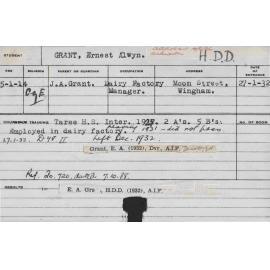 STUDENT GRANT, Ernest Alwyn. H.D.D.
FEE RELIGION PARENT OR GUARDIAN OCCUPATION ADDRESS DATE OF ENTRANCE
5-1-14 C of E J.A.Grant. Dairy Factory Manager. Moon Street, Wingham. 27-1-32
TRAINING Taree H.S. Inter. 2 A's. 5 B's. NO. OF ROOM
Employed in dairy factory. 1931 - did not pass
27.1.32 D48 II Left Dec. 1932
Grant, E. A. (1932), Dvr, A.I.F.
Ref. 20.720, 7.10.88.
RESULTS E. A. Gra , H.D.D. (1932), A.I.F.